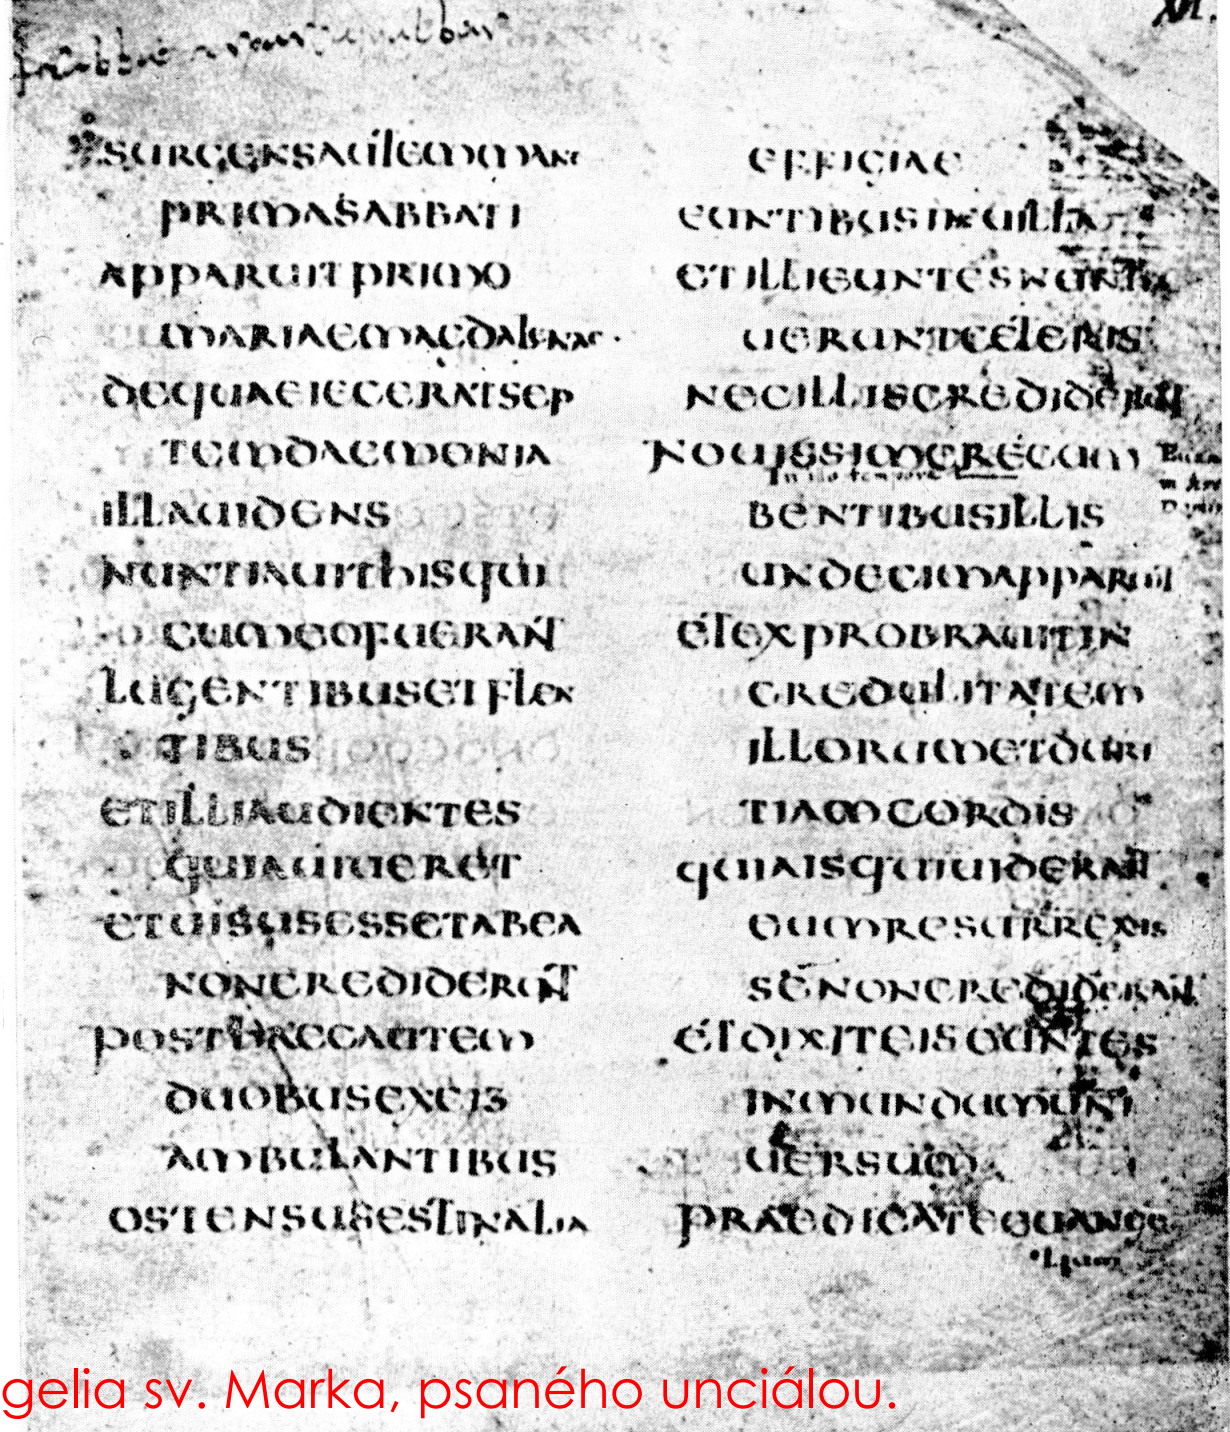 XVI.
SURGENSAUTEMMANE
PRIMASABBATI
APPARUITPRIMO
MARIAEMAGDALENAE·
DEQUAEIECERATSEP
TEMDAEMONIA
ILLAUIDENS
NUNTIAUITHISQUI
CUMEOFUERANT
LUGENTIBUSETFLEN
TIBUS
ETILLIAUDIENTES
QUIAUIUERET
ETUISUSESSETABEA
NONCREDIDERUNT
POSTHAECAUTEM
DUOBUSEXEIS
AMBULANTIBUS
OSTENSUSESTINALIA
EFFIGIAE
EUNTIBUSINUILLA
ETILLIEUNTESNUNTIA
UERUNTCETERIS
NECILLISCREDIDERUNT
NOUISSIMERECUM
In illo tempore
BENTIBUSILLIS
UNDECIMAPPARUIT
ETEXPROBRAUITIN
CREDULITATEM
ILLORUMETDURI
TIAMCORDIS
QUIAISQUIUIDERANT
EUMRESURREXIS
SENONCREDIDERANT
ETDIXITEISEUNTES
INMUNDUMUNI
UERSUM
PRAEDICATEEUANGE
gelia sv. Marka, psaného unciálou.